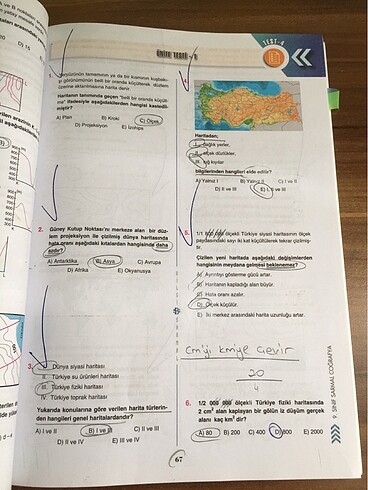 ÜNİTE TESTİ - 1
TEST-4
1. Yeryüzünün tamamının ya da bir kısmının kuşbakı-
şı görünümünün belli bir oranda küçültülerek düzlem
üzerine aktarılmasına harita denir.
Haritanın tanımında geçen "belli bir oranda küçült-
me" ifadesiyle aşağıdakilerden hangisi kastedil-
miştir?
A) Plan B) Kroki C) Ölçek
D) Projeksiyon E) İzohips
2. Güney Kutup Noktası'nı merkeze alan bir düz-
lem projeksiyon ile çizilmiş dünya haritasında
hata oranı aşağıdaki kıtalardan hangisinde daha
azdır?
A) Antarktika B) Asya C) Avrupa
D) Afrika E) Okyanusya
3. I. Dünya siyasi haritası
II. Türkiye su ürünleri haritası
III. Türkiye fiziki haritası
IV. Türkiye toprak haritası
Yukarıda konularına göre verilen harita türlerin-
den hangileri genel haritalardandır?
A) I ve II B) I ve III C) II ve III
D) II ve IV E) III ve IV
4.
Haritadan;
I. dağlık yerler,
II. alçak düzlükler,
III. sığ kıyılar
bilgilerinden hangileri elde edilir?
A) Yalnız I B) Yalnız II C) I ve II
D) II ve III E) I, II ve III
5. 1/1 800 000 ölçekli Türkiye siyasi haritasının ölçek
paydasındaki sayı iki kat küçültülerek tekrar çizilmiş-
tir.
Çizilen yeni haritada aşağıdaki değişimlerden
hangisinin meydana gelmesi beklenemez?
A) Ayrıntıyı gösterme gücü artar.
B) Haritanın kapladığı alan büyür.
C) Hata oranı azalır.
D) Ölçek küçülür.
E) İki merkez arasındaki harita uzunluğu artar.
cm'yi km'ye çevir
20
4
6. 1/2 000 000 ölçekli Türkiye fiziki haritasında
2 cm² alan kaplayan bir gölün iz düşüm gerçek
alanı kaç km² dir?
A) 80 B) 200 C) 400 D) 800 E) 2000
9. SINIF SARMAL COĞRAFYA
67